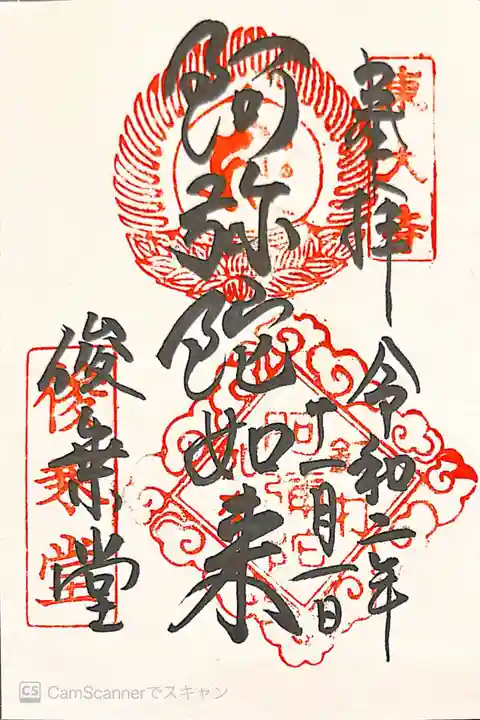 東大寺
奉拝
令和二年
十一月一日
阿弥陀如来
俊乗堂
俊乗堂
CS CamScannerでスキャン